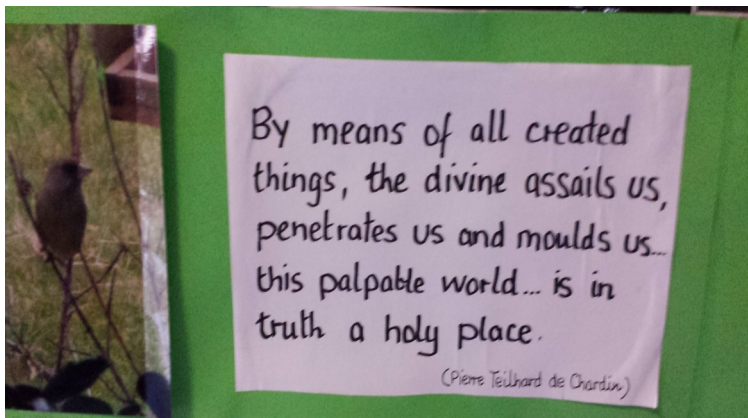 By means of all created
things, the divine assails us,
penetrates us and moulds us...
this palpable world... is in
truth a holy place.
(Pierre Teilhard de Chardin)